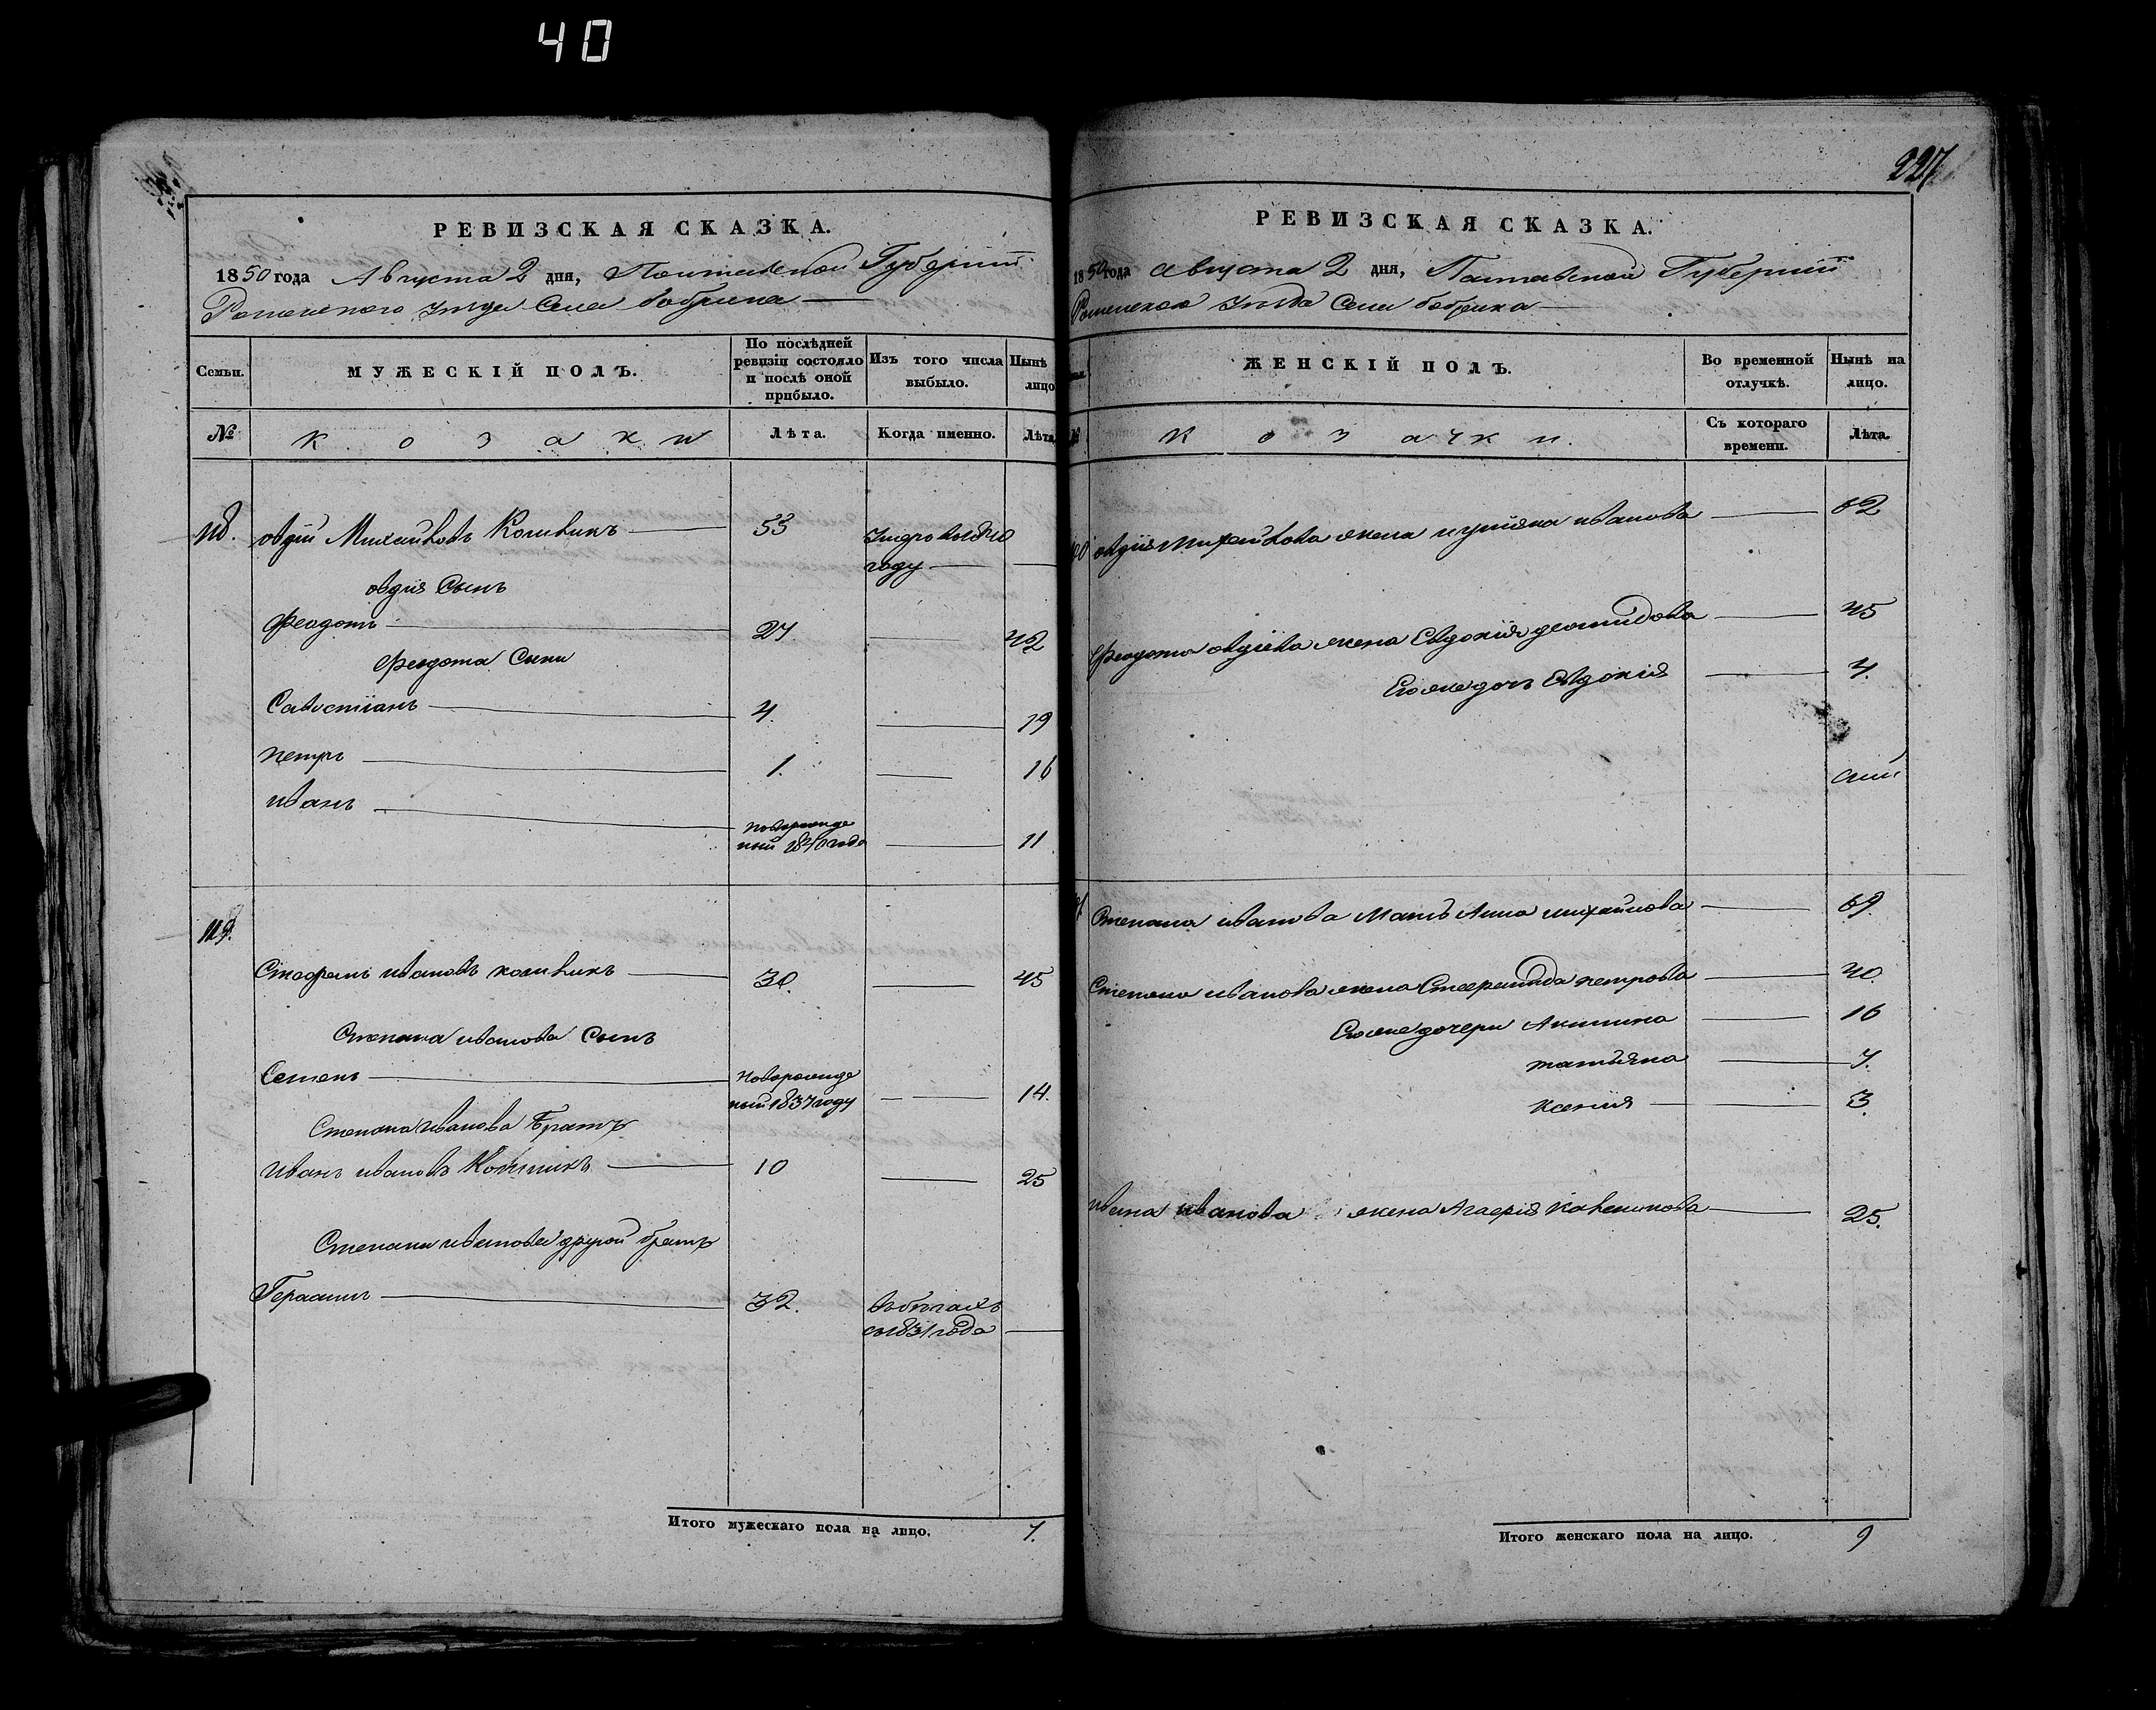 40
РЕВИЗСКАЯ СКАЗКА.
1850 года Августа 2 дня, Полтавской Губерніи
Роменского уезда Села бобрика
Семьи.
МУЖЕСКІЙ ПОЛЪ.
По послѣдней ревизіи состояло и послѣ оной прибыло.
Изъ того числа выбыло.
Нынѣ лицо
№
козаки
Лѣта.
Когда именно.
Лѣта
овдій Михайловъ
53
году
овдія Сынъ
Феодотъ
27
42
Феодота Сыни
Савостіанъ
4.
19
петръ
1.
16
иванъ
новорожде
ный 1840 года
11
119.
ивановъ
30.
45
Степана иванова Сынъ
Семенъ
Новорожде
ный 1837 году
14.
Степана иванова Братъ
иванъ ивановъ
10
25
Степана иванова другой братъ
Герасим
32.
въ бегахъ
съ 1831 года
Итого мужескаго пола на лицо.
7.
227
РЕВИЗСКАЯ СКАЗКА.
1850 года августа 2 дня, Полтавской Губерніи
Роменского уезда Села бобрика
ЖЕНСКІЙ ПОЛЪ.
Во временной отлучкѣ.
Нынѣ на лицо.
козачки.
Съ котораго времени.
Лѣта.
овдія Михайлова жена иванова
62
Феодота овдіева жена Евдокія
45
Его же дочь Евдокія
7.
Степана иванова Мать Анна михайлова
69.
Степана иванова жена петрова
40.
Его же дочери Акилина
16
татьяна
7.
ксенія
3.
ивана иванова жена
25.
Итого женскаго пола на лицо.
9